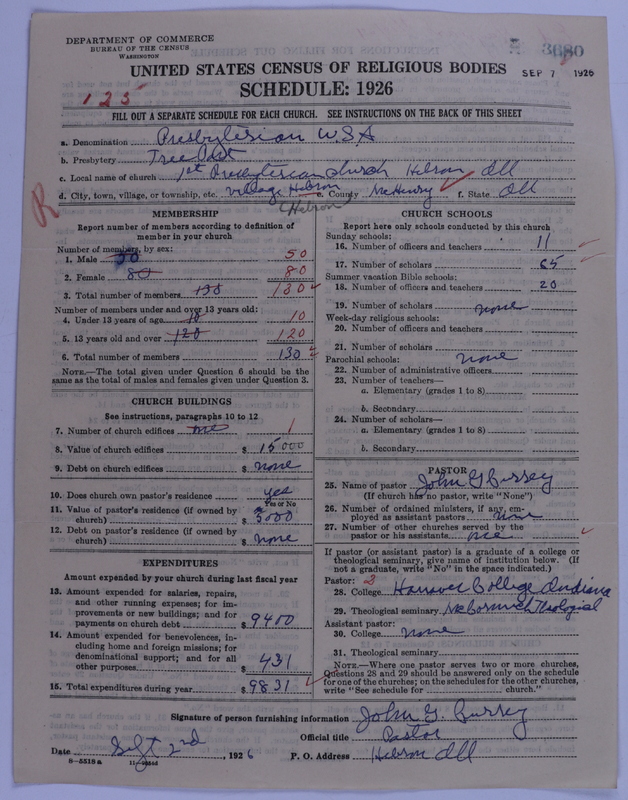 DEPARTMENT OF COMMERCE
BUREAU OF THE CENSUS
WASHINGTON
3680
SEP 7 1926
UNITED STATES CENSUS OF RELIGIOUS BODIES
SCHEDULE: 1926
1 2 5
FILL OUT A SEPARATE SCHEDULE FOR EACH CHURCH. SEE INSTRUCTIONS ON THE BACK OF THIS SHEET
a. Denomination Presbyterian U.S.A
b. Presbytery Free Port
c. Local name of church 1st Presbyterian Church Hebron Ill
d. City, town, village, or township, etc. Village Hebron e. County McHenry f. State Ill
(Hebron
R
MEMBERSHIP
Report number of members according to definition of
member in your church
Number of members, by sex:
1. Male 50 50
2. Female 80 80
3. Total number of members 130 130
Number of members under and over 13 years old:
4. Under 13 years of age 10 10
5. 13 years old and over 120 120
6. Total number of members 130
NOTE.—The total given under Question 6 should be
same as the total of males and females given under Question 3.
CHURCH BUILDINGS
See instructions, paragraphs 10 to 12
7. Number of church edifices one 1
8. Value of church edifices $ 15000
9. Debt on church edifices $ none
10. Does church own pastor's residence yes
Yes or No
11. Value of pastor's residence (if owned by
church) $ 5000
12. Debt on pastor's residence (if owned by
church) $ none
EXPENDITURES
Amount expended by your church during last fiscal year
13. Amount expended for salaries, repairs,
and other running expenses; for im-
provements or new buildings; and for
payments on church debt $ 9400
14. Amount expended for benevolences, in-
cluding home and foreign missions; for
denominational support; and for all
other purposes $ 431
15. Total expenditures during year $ 9831
CHURCH SCHOOLS
Report here only schools conducted by this church
Sunday schools:
16. Number of officers and teachers 11
17. Number of scholars 65
Summer vacation Bible schools:
18. Number of officers and teachers 20
19. Number of scholars none
Week-day religious schools:
20. Number of officers and teachers
21. Number of scholars none
Parochial schools:
22. Number of administrative officers
23. Number of teachers—
a. Elementary (grades 1 to 8)
b. Secondary
24. Number of scholars—
a. Elementary (grades 1 to 8)
b. Secondary
PASTOR
25. Name of pastor John G Bursey
(If church has no pastor, write "None")
26. Number of ordained ministers, if any, em-
ployed as assistant pastors none
27. Number of other churches served by the
pastor or his assistants one
If pastor (or assistant pastor) is a graduate of a college or
theological seminary, give name of institution below. (If
not a graduate, write "No" in the space indicated.)
Pastor: 2
28. College Hanover College Indiana
29. Theological seminary McCormick Theological
Assistant pastor:
30. College none
31. Theological seminary
NOTE.—Where one pastor serves two or more churches,
Questions 28 and 29 should be answered only on the schedule
for one of the churches; on the schedules for the other churches,
write "See schedule for church."
Signature of person furnishing information John G. Bursey
Official title Pastor
Date Sept 2nd, 1926 P. O. Address Hebron Ill
8—5518a